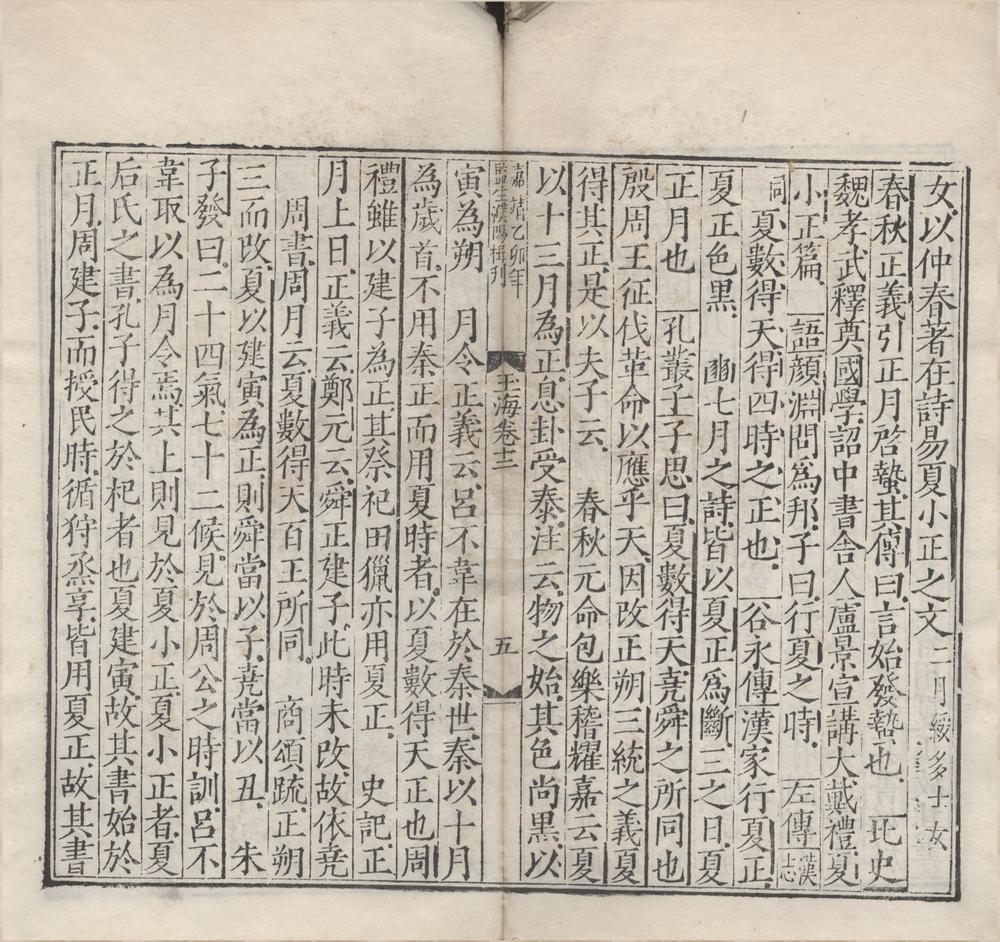 女以仲春著在詩易夏小正之文二月綏多士女
春秋正義引正月啓蟄其傳曰言始發蟄也　北史
魏孝武釋奠國學詔中書舍人盧景宣講大戴禮夏
小正篇　語顔淵問爲邦子曰行夏之時　左傳漢志
同夏數得天得四時之正也　谷永傳漢家行夏正
夏正色黒　豳七月之詩皆以夏正爲斷三之日夏
正月也　孔叢子子思曰夏數得天堯舜之所同也
殷周王征伐革命以應乎天因改正朔三統之義夏
得其正是以夫子云　春秋元命包樂稽耀嘉云夏
以十三月為正息卦受泰注云物之始其色尚黒以
嘉靖乙卯年
監生漢陽楫刋
玉海卷十二
五
寅為朔　月令正義云呂不韋在於秦世秦以十月
為歲首不用秦正而用夏時者以夏數得天正也周
禮雖以建子為正其祭祀田獵亦用夏正　史記正
月上日正義云鄭元云舜正建子此時未改故依堯
周書周月云夏數得天百王所同　商頌疏正朔
三而改夏以建寅為正則舜當以子堯當以丑　朱
子發曰二十四氣七十二候見於周公之時訓呂不
韋取以為月令焉其上則見於夏小正夏小正者夏
后氏之書孔子得之於杞者也夏建寅故其書始於
正月周建子而授民時循狩烝享皆用夏正故其書